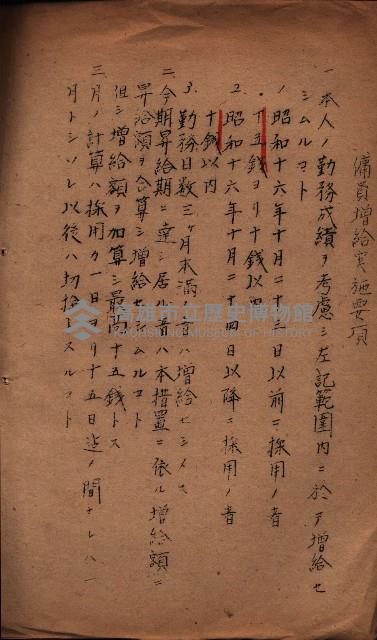 傭員増給実施要項
一、本人ノ勤務成績ヲ考慮シ左記範囲内ニ於テ増給セ
シムルコト
1、昭和十六年十月二十三日以前ニ採用ノ者
十五銭ヨリ十銭以
2、昭和十六年十月二十四日以降ニ採用ノ者
十銭以内
3、勤務日数三ヶ月未満ノ者ハ増給セシメス
二、今期昇給期ニ達シ居ル者ハ本措置ニ依ル増給額ニ
昇給額ヲ合算シ増給セシムルコト
但シ増給額ヲ加算シ最高十五銭トス
三、月ノ計算ハ採用カ一日ヨリ十五日迄ノ間ナレハ一
月トシソレ以後ハ切捨トスルコト
高雄市立歷史博物館
KAOHSIUNG MUSEUM OF HISTORY